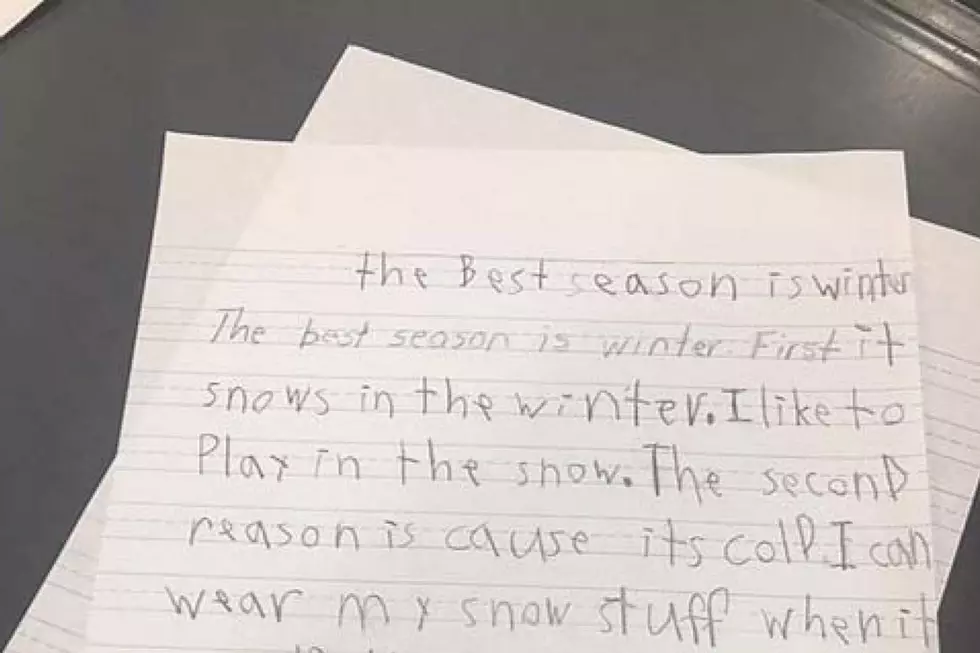 the Best season is winter
The best season is winter. First it
snows in the winter. I like to
Play in the snow. The second
reason is cause its cold. I can
wear my snow stuff when it